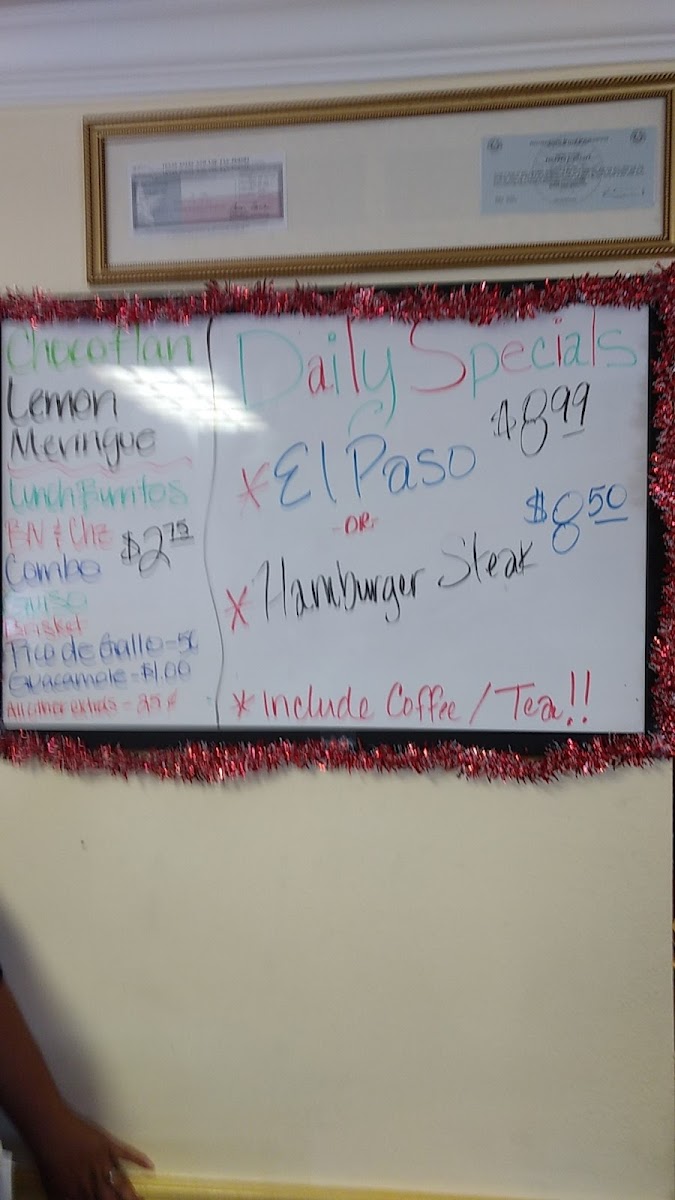 Chocoflan
Lemon
Meringue
Lunch Burritos
BN & Chz
$2.75
Combo
Guiso
Brisket
Pico de Gallo - 50
Guacamole - $1.00
All other extras - 25¢
Daily Specials
$8.99
* El Paso
-OR-
$8.50
* Hamburger Steak
* Include Coffee / Tea!!